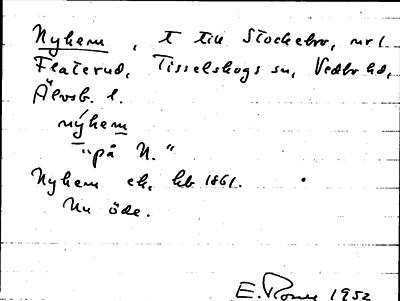 Nyhem, t till Stockebo, nr 1
Flaterud, Tisselskogs sn, Vedbo hd,
Älvsb. l.
nýhem
"på N."
Nyhem eh, hb 1861.
Nu öde.
E. 1952